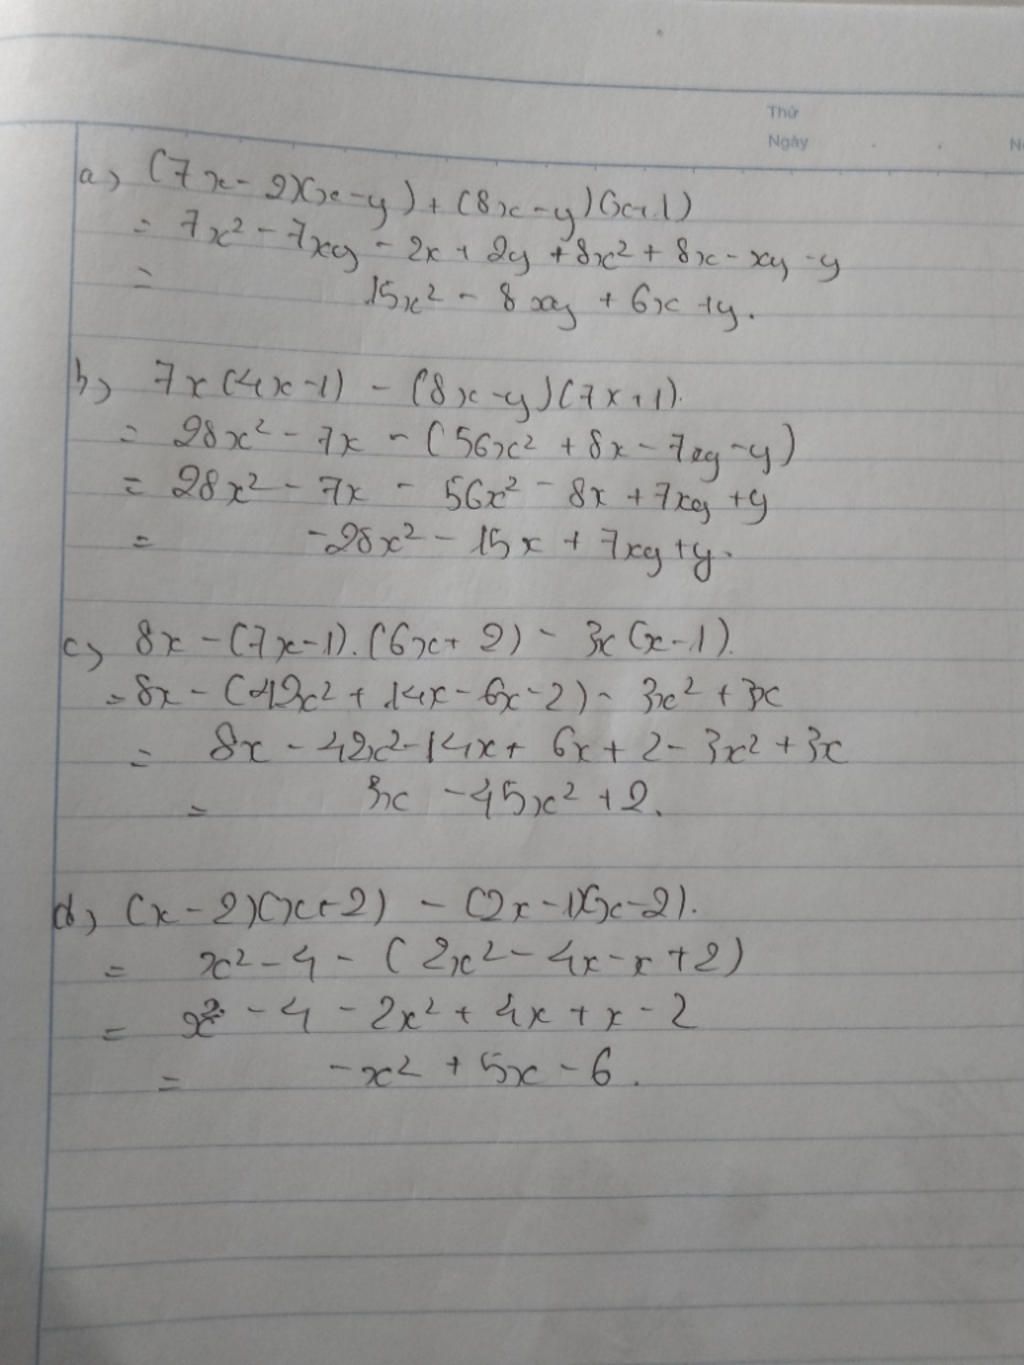 Thứ
Ngày
a, (7x - 2)(x - y) + (8x - y)(x + 1)
= 7x² - 7xy - 2x + 2y + 8x² + 8x - xy - y
= 15x² - 8xy + 6x + y.
b, 7x(4x - 1) - (8x - y)(7x + 1).
= 28x² - 7x - (56x² + 8x - 7xy - y)
= 28x² - 7x - 56x² - 8x + 7xy + y
= -28x² - 15x + 7xy + y.
c, 8x - (7x - 1).(6x + 2) - 3x(x - 1).
= 8x - (42x² + 14x - 6x - 2) - 3x² + 3x
= 8x - 42x² - 14x + 6x + 2 - 3x² + 3x
= 3x - 45x² + 2.
d, (x - 2)(x + 2) - (2x - 1)(x - 2).
= x² - 4 - (2x² - 4x - x + 2)
= x² - 4 - 2x² + 4x + x - 2
= -x² + 5x - 6.